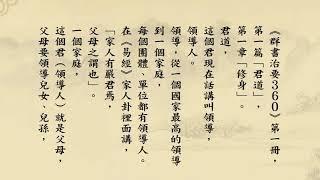 《群書治要360》第一冊，
第一篇「君道」，
第一章「修身」。
君道，
這個君現在話講叫領導，
領導人。
領導，從一個國家最高的領導
到一個家庭，
每個團體、單位都有領導人。
在《易經》家人卦裡面講，
「家人有嚴君焉，
父母之謂也」。
一個家庭，
這個君（領導人）就是父母，
父母要領導兒女、兒孫，